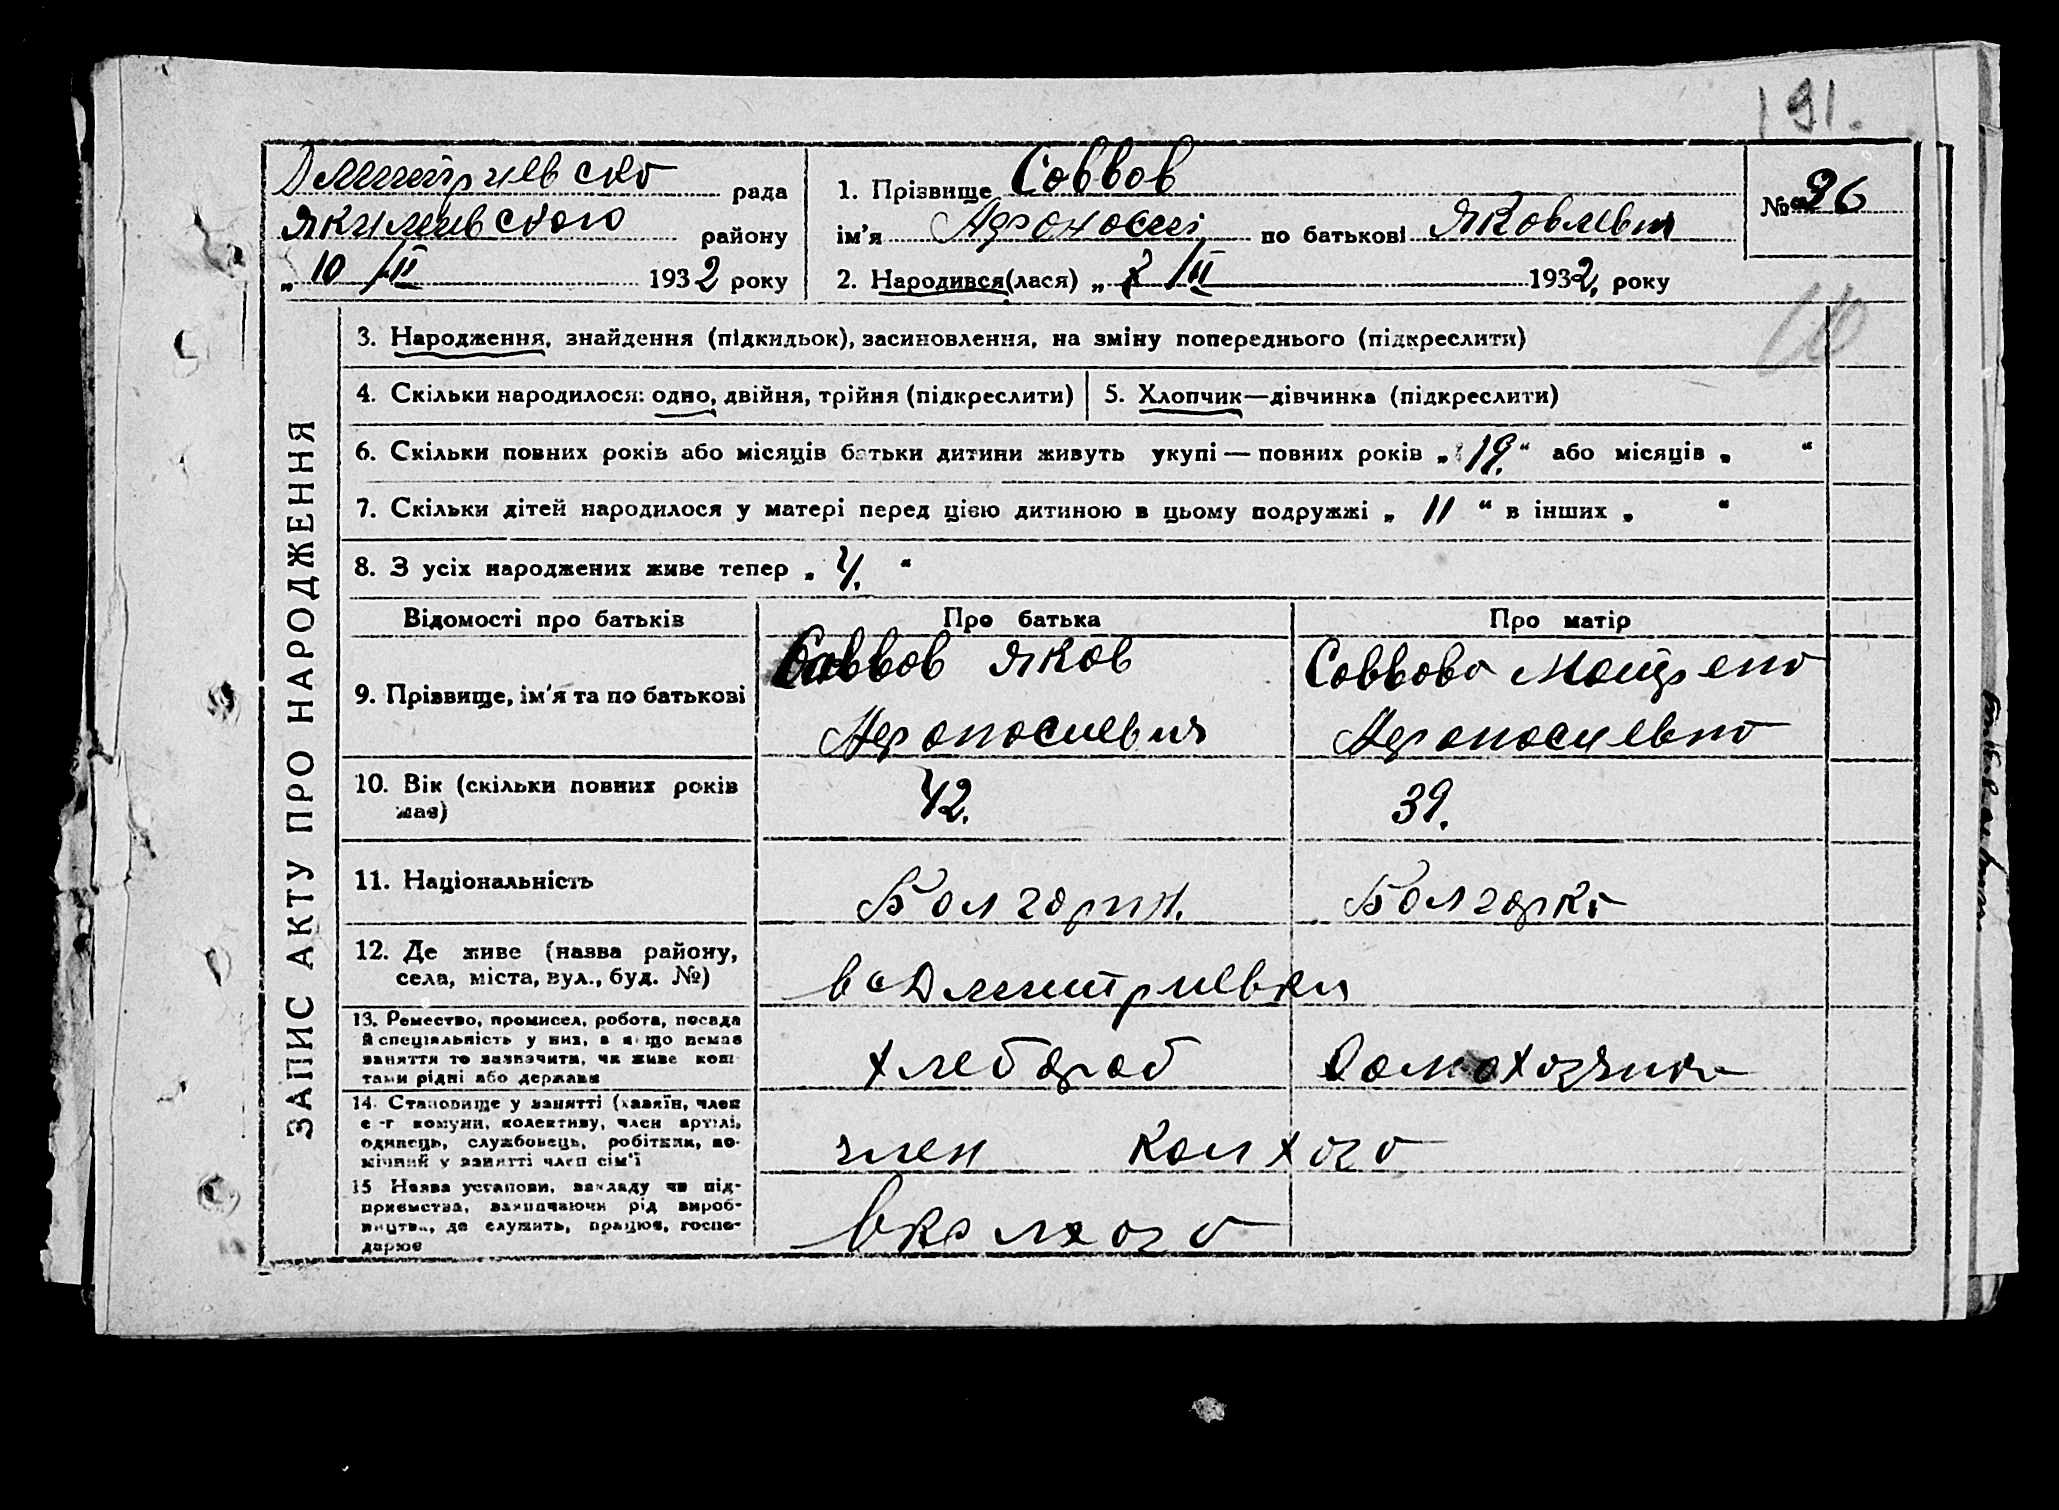 191.
Дмитриевско рада
Якимивского району
„ 10/II 1932 року
1. Прізвище Соввов
ім'я Афонасій по батькові Яковлевич
2. Народився(лася) „ /II 1932, року
№ 96
ЗАПИС АКТУ ПРО НАРОДЖЕННЯ
3. Народження, знайдення (підкидьок), засиновлення, на зміну попереднього (підкреслити)
4. Скільки народилося: одно, двійня, трійня (підкреслити)
5. Хлопчик—дівчинка (підкреслити)
6. Скільки повних років або місяців батьки дитини живуть укупі — повних років „ 19. “ або місяців „ “
7. Скільки дітей народилося у матері перед цією дитиною в цьому подружжі „ 11 “ в інших „ “
8. З усіх народжених живе тепер „ 4. “
Відомості про батьків
Про батька
Про матір
9. Прізвище, ім'я та по батькові
Соввов Яков
Афонасиевич
Соввова Мотрена
Афонасиевна
10. Вік (скільки повних років
має)
42.
39.
11. Національність
Болгарин.
Болгарка
12. Де живе (назва району,
села, міста, вул., буд. №)
в с Дмитриевки
13. Ремество, промисел, робота, посада
й спеціяльність у них, а якщо немає
заняття то зазначити, чи живе кош-
тами рідні або держави
хлебороб
Домохозяика
14. Становище у занятті (хазяїн, член
с-г комуни, колективу, член артілі,
одинець, службовець, робітник, по-
мічний у занятті член сім'ї
член колхоза
15 Назва установи, закладу чи під-
приємства, зазначаючи рід вироб-
ництва, де служить, працює, госпо-
дарює
в колхозо